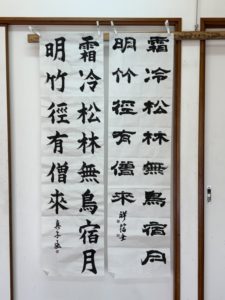 霜冷松林無鳥宿月
明竹徑有僧來
霜冷松林無鳥宿月
明竹徑有僧來